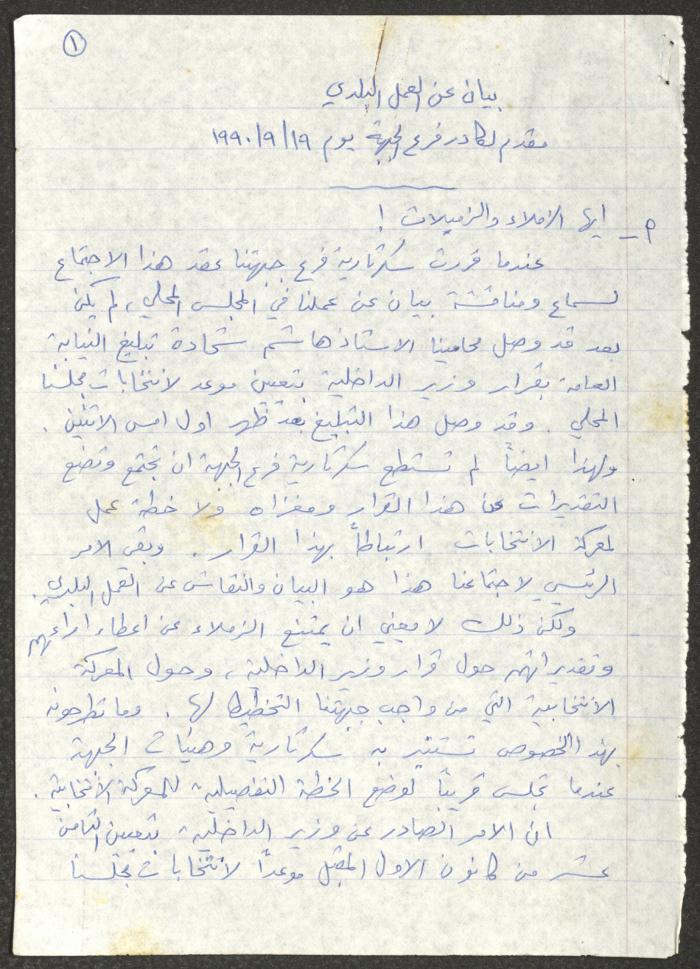 ١
بيان عن العمل البلدي
مقدم لكادر فرع الجبهة يوم ١٩٩٠/٩/١٩
م - ايها الزملاء والزميلات !
عندما قررت سكرتارية فرع جبهتنا عقد هذا الاجتماع
لسماع ومناقشة بيان عن عملنا في المجلس المحلي، لم يكن
بعد قد وصل محامينا الاستاذ هاشم شحادة تبليغ النيابة
العامة بقرار وزير الداخلية بتعيين موعد لانتخابات مجلسنا
المحلي . وقد وصل هذا التبليغ بعد ظهر اول امس الاثنين .
ولهذا ايضاً لم تستطع سكرتارية فرع الجبهة ان تجتمع وتضع
التقديرات عن هذا القرار ومغزاه ولا خطة عمل
لمعركة الانتخابات ارتباطاً بهذا القرار . وبقي الامر
الرئيسي لاجتماعنا هذا هو البيان والنقاش عن العمل البلدي .
ولكن ذلك لا يعني ان يمتنع الزملاء عن اعطاء اراءهم
وتقديراتهم حول قرار وزير الداخلية ، وحول المعركة
الانتخابية التي من واجب جبهتنا التخطيط لها . وما تطرحونه
بهذا الخصوص تستنير به سكرتارية وهيئات الجبهة
عندما تجلس قريباً لوضع الخطة التفصيلية للمعركة الانتخابية .
ان الامر الصادر عن وزير الداخلية بتعيين الثامن
عشر من كانون الاول المقبل موعداً لانتخابات مجلسنا